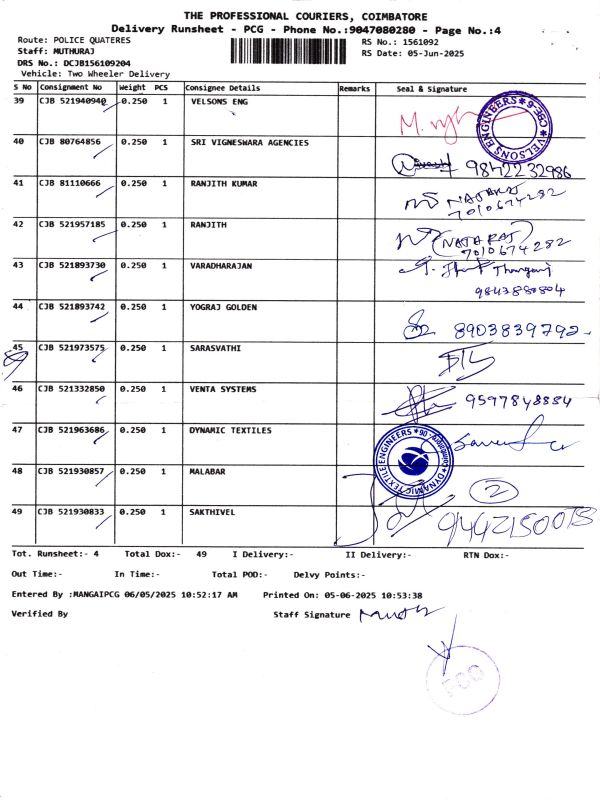 THE PROFESSIONAL COURIERS, COIMBATORE
Delivery Runsheet - PCG - Phone No.:9047080280 - Page No.:4
Route: POLICE QUATERES RS No.: 1561092
Staff: MUTHURAJ RS Date: 05-Jun-2025
DRS No.: DCJB156109204
Vehicle: Two Wheeler Delivery
S No Consignment No Weight PCS Consignee Details Remarks Seal & Signature
39 CJB 521940940 0.250 1 VELSONS ENG VELSONS ENGINEERS * CBE-6 *
40 CJB 80764856 0.250 1 SRI VIGNESWARA AGENCIES 9842232986
41 CJB 81110666 0.250 1 RANJITH KUMAR NATARAJ
7010674282
42 CJB 521957185 0.250 1 RANJITH (NATARAJ)
7010674282
43 CJB 521893730 0.250 1 VARADHARAJAN
9843880804
44 CJB 521893742 0.250 1 YOGRAJ GOLDEN 8903839792
45 CJB 521973575 0.250 1 SARASVATHI
46 CJB 521332850 0.250 1 VENTA SYSTEMS 9597848884
47 CJB 521963686 0.250 1 DYNAMIC TEXTILES DYNAMIC TEXTILE ENGINEERS
48 CJB 521930857 0.250 1 MALABAR 2
49 CJB 521930833 0.250 1 SAKTHIVEL
Tot. Runsheet:- 4 Total Dox:- 49 I Delivery:- II Delivery:- RTN Dox:-
Out Time:- In Time:- Total POD:- Delvy Points:-
Entered By :MANGAIPCG 06/05/2025 10:52:17 AM Printed On: 05-06-2025 10:53:38
Verified By Staff Signature